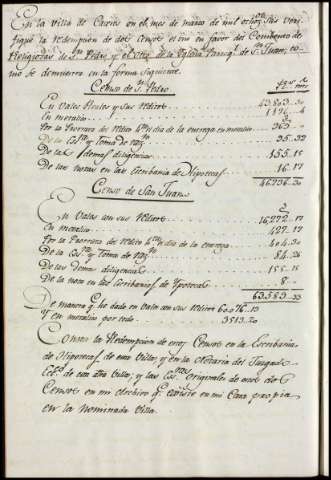 En la Villa de Cacires en el mes de marzo de mil ochoc.tos seis ver-
fique la Redempcion de dos Censos el uno en favor del Combento de
Religiosas de S.n Pedro y el otro de la Yglesia Parroq.l de S.n Juan, co-
mo se demuestra en la forma siguiente.
Censo de S.n Pedro
En Vales Reales y sus Reditos 43.863..30
En metalico 1194..4
Por la Prorrata del Redito hasta el dia de la entrega en metalico 363
De la Es.ra y toma de razon 35..32
De las demas diligencias 155..15
De las notas en las Escribania de Hipotecas 16..17
46236..30
Censo de San Juan
En Vales con sus Reditos 16,272..17
En metalico 427..17
Por la Prorrata del Redito hasta el dia de la entrega 404..30
De la Es.ra y toma de Razon 84..26
De las demas diligencias 155..15
De la nota en las Escribanias de Ypotecas 8
63.583..33
De manera q.e he dado en Vales con sus Reditos 60.076..13
Y en metalico por todo 3513..20
Consta la Redempcion de estos Censos en la Escribania
de Hipotecas de esta Villa, y en la Notaria del Juzgado
Ecc.co de esta otra Villa, y las Es.ras originales de estos dos
Censos en mi Archivo q.e existe en mi Casa propia
en la nominada Villa.